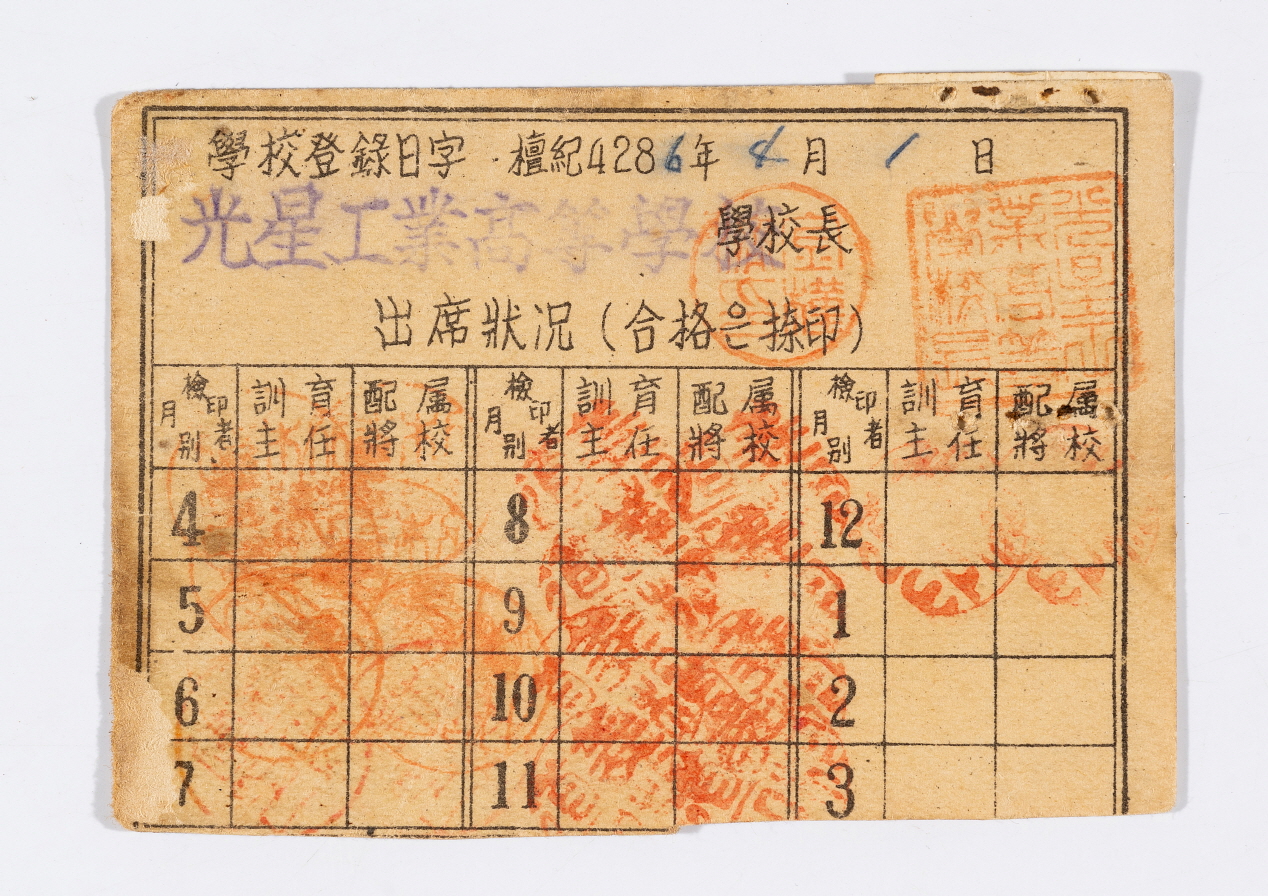 學校登錄日字 檀紀4286年 4月 1日
光星工業高等學校
學校長
出席狀况(合格은捺印)
檢印者 月別 訓育主任 配属將校 檢印者 月別 訓育主任 配属將校 檢印者 月別 訓育主任 配属將校
4 8 12
5 9 1
6 10 2
7 11 3